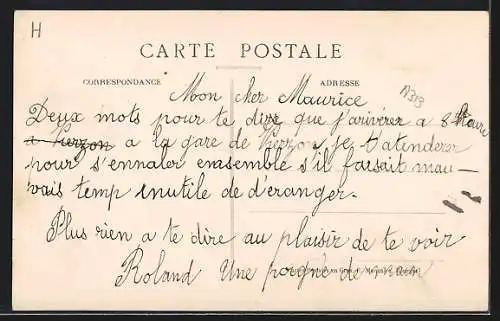 H
CARTE POSTALE
CORRESPONDANCE
ADRESSE
A313
Mon cher Maurice
Deux mots pour te dire que j'ariverer a 8 heure
a Vierzon a la gare de Vierzon je t'atenderer
pour s'ennaler emsemble s'il faisait mau-
vais temp inutile de d'eranger.
Plus rien a te dire au plaisir de te voir
Roland Une poigné de main